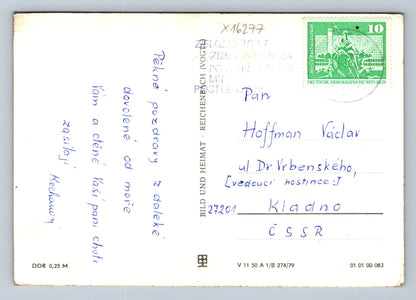 X16277
Pěkné pozdravy z daleké
dovolené od moře
Vám a ctěné Vaší paní choti
zasílají
BILD UND HEIMAT · REICHENBACH (VOGTL)
10
DEUTSCHE DEMOKRATISCHE REPUBLIK
Pan
Hoffman Václav
ul Dr Vrbenského,
[vedoucí hostince:]
27201 Kladno
ČSSR
DDR 0,25 M
V 11 50 A 1/B 274/79
01 01 00 083